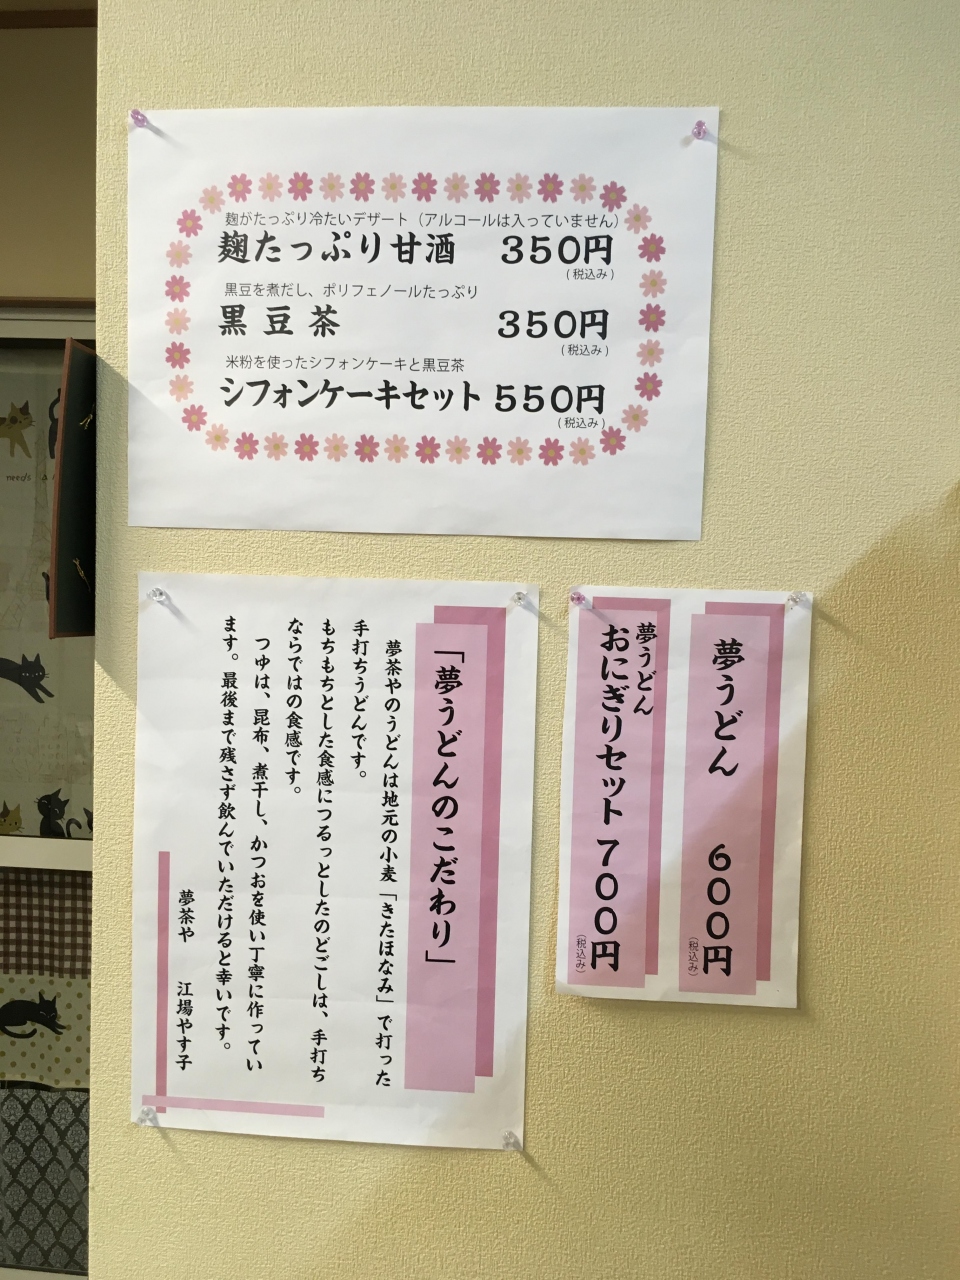 麹がたっぷり冷たいデザート（アルコールは入っていません）
麹たっぷり甘酒 350円
（税込み）
黒豆を煮だし、ポリフェノールたっぷり
黒豆茶 350円
（税込み）
米粉を使ったシフォンケーキと黒豆茶
シフォンケーキセット 550円
（税込み）
「夢うどんのこだわり」
夢茶やのうどんは地元の小麦「きたほなみ」で打った
手打ちうどんです。
もちもちとした食感につるっとしたのどごしは、手打ち
ならではの食感です。
つゆは、昆布、煮干し、かつおを使い丁寧に作ってい
ます。最後まで残さず飲んでいただけると幸いです。
夢茶や 江場やす子
夢うどん 600円
（税込み）
夢うどん
おにぎりセット 700円
（税込み）
needs